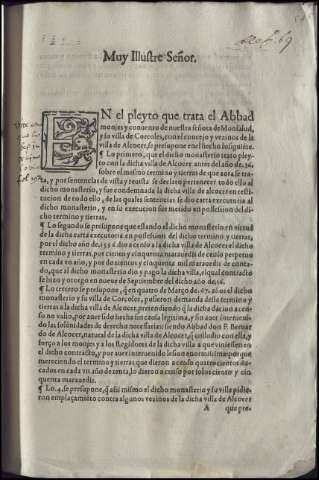 Muy Illustre Señor.
EN el pleyto que trata el Abbad
monjes y conuento de nuestra señora de Monsalud,
y su villa de Corcoles, con el concejo y vezinos de la
villa de Alcocer, se presupone en el hecho lo siguiẽte.
¶ Lo primero, que el dicho monasterio trato pleyto
con la dicha villa de Alcocer antes del año de, 36,
sobre el mesmo termino y tierras de que aora se trata,
y por sentencias de vista y reuista se declaro pertenecer todo ello al
dicho monasterio, y fue condemnada la dicha villa de alcocer en restitucion
de todo ello, de las quales sentencias se dio carta executoria al
dicho monasterio, y en su execucion fue metido en possession del dicho
termino y tierras.
¶ Lo segundo se presupone que estando el dicho monasterio en virtud
de la dicha carta executoria en possession del dicho termino y tierras,
por el dicho año de,
dio a censo a la dicha villa de Alcocer el dicho
termino y tierras, por ciento y cinquenta marauedis de censo perpetuo
en cada vn año, y por
marauedis de contado,
que al dicho monasterio dio y pago la dicha villa, el qual contracto
se hizo y otorgo en nueue de Septiembre del dicho año de,
¶ Lo tercero se presupone, q̃ en quatro de Março de, 67. años el dicho
monasterio y su villa de Corcoles, pusieron demanda deste termino y
tierras a la dicha villa de Alcocer, pretendiendo q̃ la dicha dacion a censo
no valio, por auerse hecho sin causa legitima, y sin auer interuenido
las solemnidades de derecho necessarias: siendo Abbad don
de Alcocer, natural de la dicha villa de Alcocer,
y
forço a los monjes y a los Regidores de la dicha villa a que viniessen en
el dicho contracto, y por auer interuenido lesion enormissima: porque
merecian las tierras que dieron a censo quatrocientos ducados
en cada vn año de renta, lo dieron a censo por solos ciento y cinquenta
marauedis.
¶ Lo, 4, se presupone, q̃ assi mismo el dicho monasterio y su villa pidieron
emplaçamiẽto contra algunos vezinos de la dicha villa de Alcocer
A que pre-